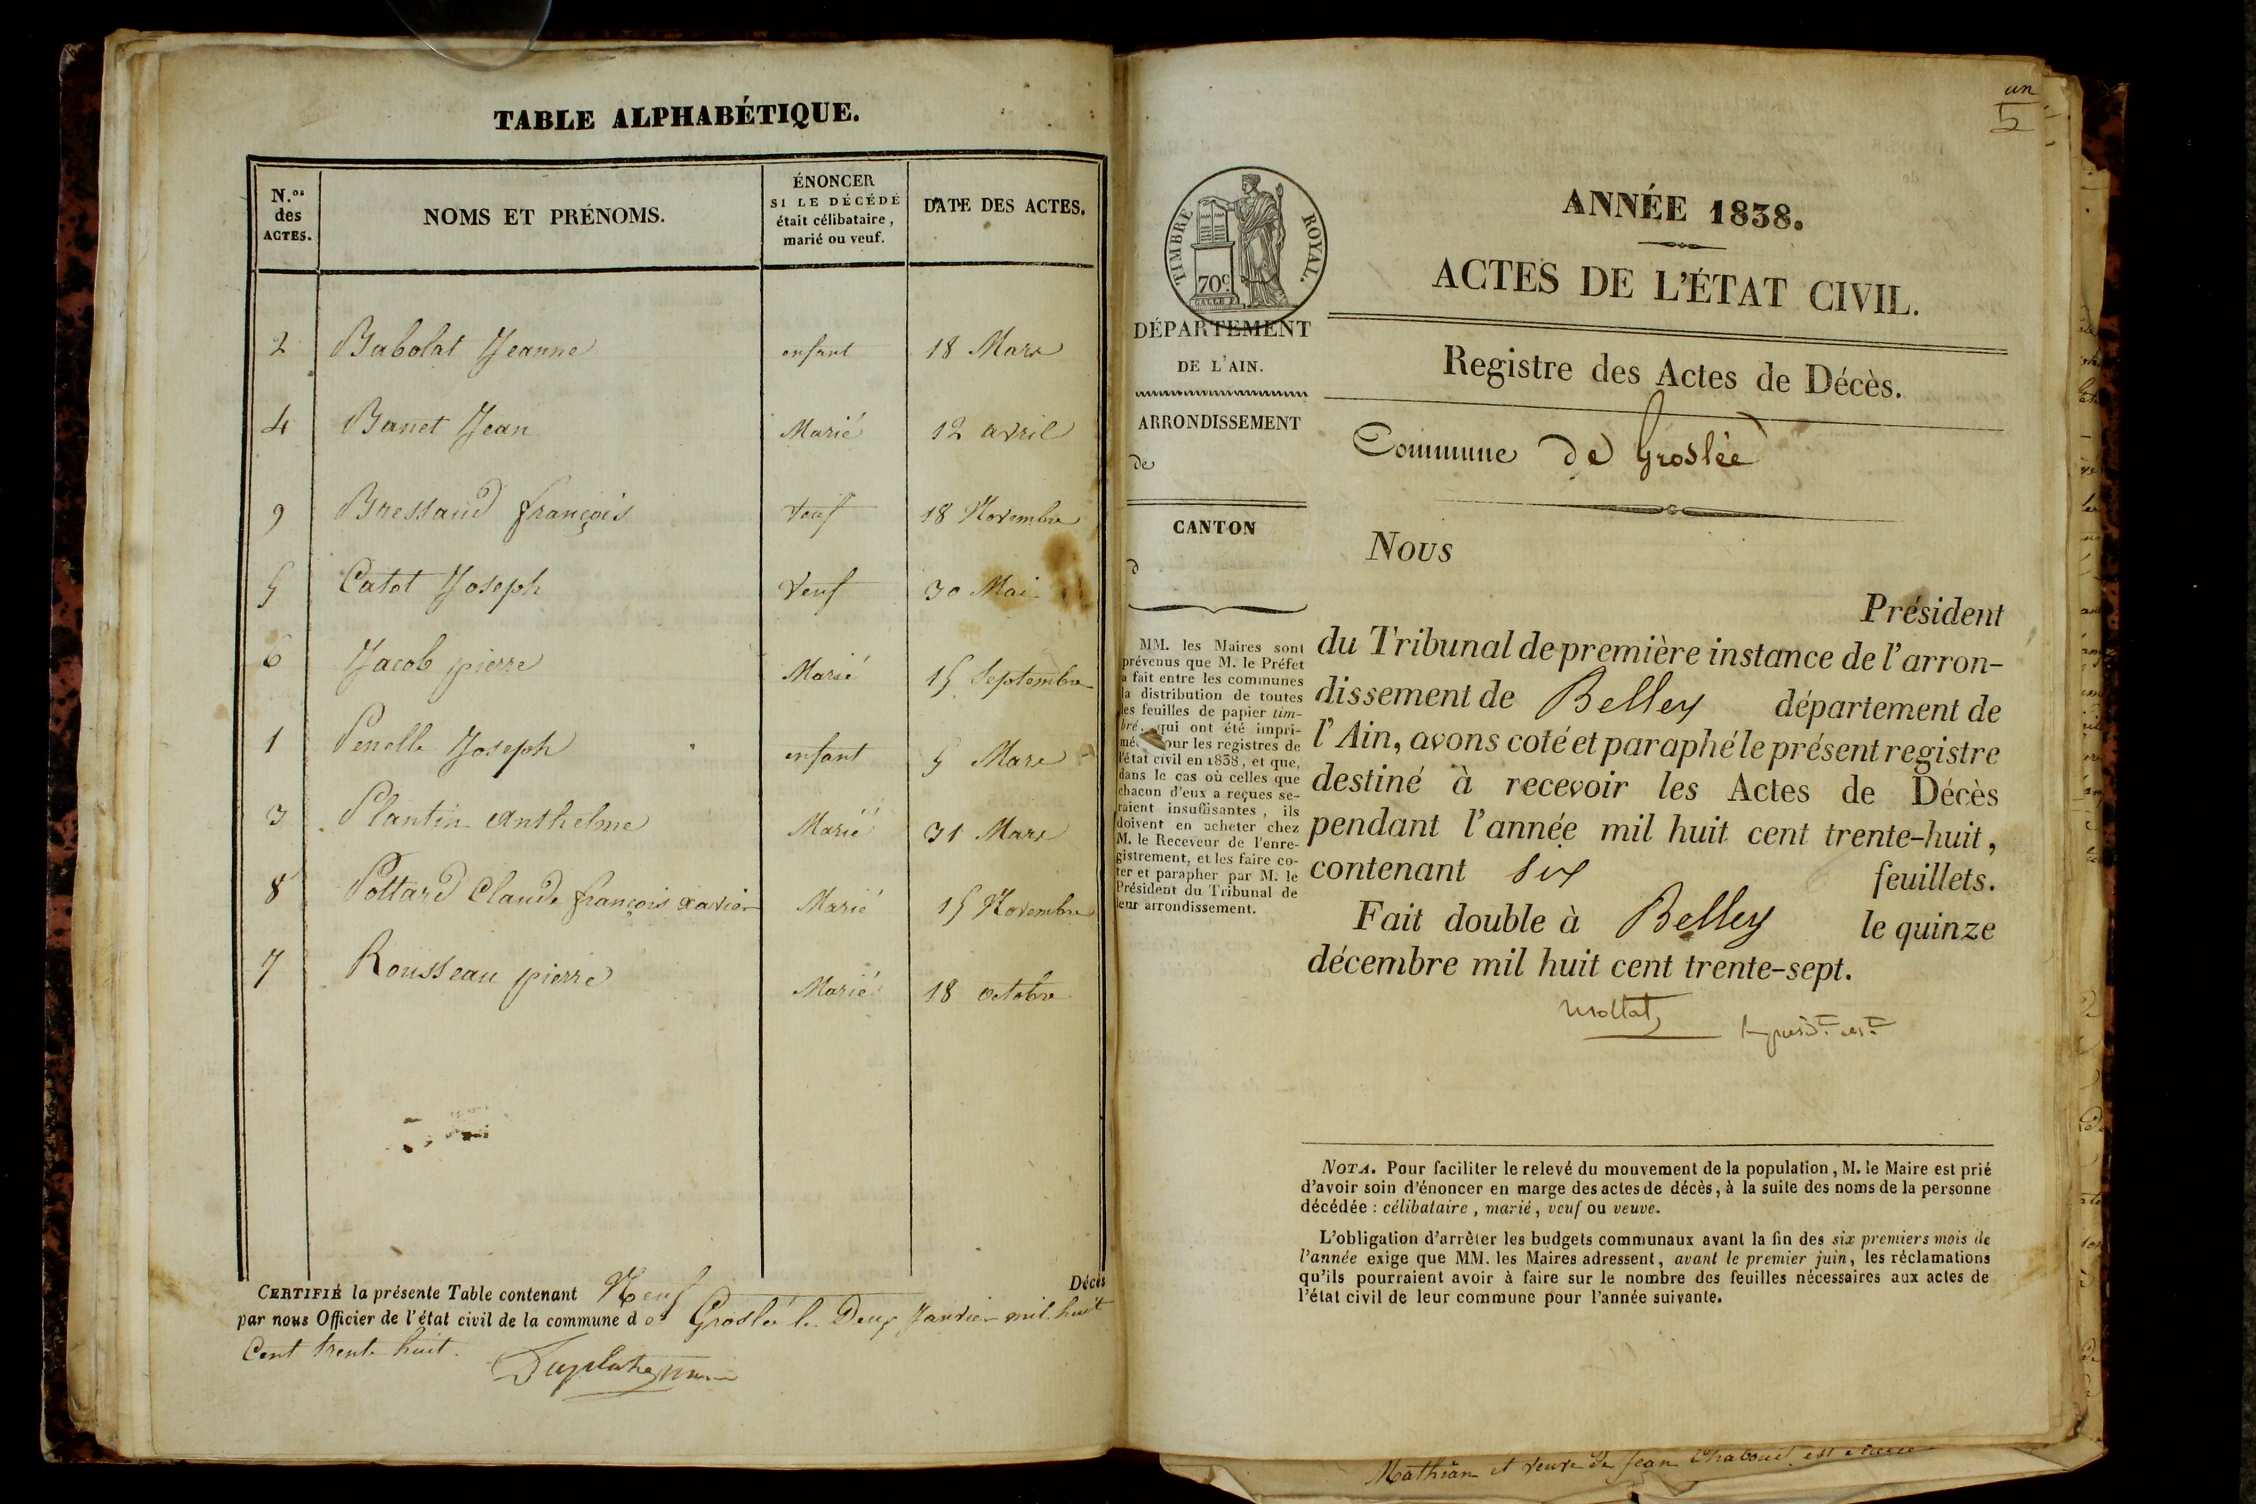 TABLE ALPHABÉTIQUE.
N.os des ACTES.
NOMS ET PRÉNOMS.
ÉNONCER
SI LE DÉCÉDÉ
était célibataire,
marié ou veuf.
DATE DES ACTES.
2 Babolat Jeanne enfant 18 Mars
4 Banet Jean Marié 12 avril
9 Bressand françois Veuf 18 Novembre
5 Catot Joseph Veuf 30 Mai
6 Jacob pierre Marié 15 Septembre
1 Penelle Joseph enfant 5 Mars
3 Plantin Anthelme Marié 31 Mars
8 Pottard Claude françois xavier Marié 15 Novembre
7 Rousseau pierre Marié 18 octobre
CERTIFIÉ la présente Table contenant Neuf Décès
par nous Officier de l'état civil de la commune de Groslée le Deux Janvier mil huit
Cent trente huit.
un
5
TIMBRE ROYAL.
70c
DÉPARTEMENT
DE L'AIN.
ARRONDISSEMENT
de
CANTON
d
MM. les Maires sont
prévenus que M. le Préfet
a fait entre les communes
la distribution de toutes
les feuilles de papier tim-
bré, qui ont été impri-
mé our les registres de
l'état civil en 1838, et que,
dans le cas où celles que
chacun d'eux a reçues se-
raient insuffisantes, ils
doivent en acheter chez
M. le Receveur de l'enre-
gistrement, et les faire co-
ter et parapher par M. le
Président du Tribunal de
leur arrondissement.
ANNÉE 1838.
ACTES DE L'ÉTAT CIVIL.
Registre des Actes de Décès.
Commune de Groslée
Nous
Président
du Tribunal de première instance de l'arron-
dissement de Belley département de
l'Ain, avons coté et paraphé le présent registre
destiné à recevoir les Actes de Décès
pendant l'année mil huit cent trente-huit,
contenant six feuillets.
Fait double à Belley le quinze
décembre mil huit cent trente-sept.
NOTA. Pour faciliter le relevé du mouvement de la population, M. le Maire est prié
d'avoir soin d'énoncer en marge des actes de décès, à la suite des noms de la personne
décédée : célibataire, marié, veuf ou veuve.
L'obligation d'arrêter les budgets communaux avant la fin des six premiers mois de
l'année exige que MM. les Maires adressent, avant le premier juin, les réclamations
qu'ils pourraient avoir à faire sur le nombre des feuilles nécessaires aux actes de
l'état civil de leur commune pour l'année suivante.
Mathian et veuve de Jean